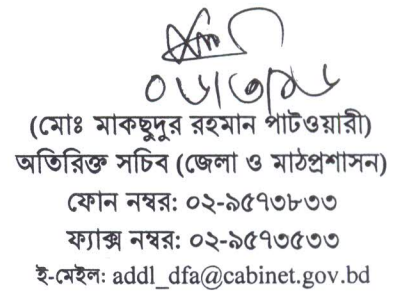 (মোঃ মাকছুদুর রহমান পাটওয়ারী)
অতিরিক্ত সচিব (জেলা ও মাঠপ্রশাসন)
ফোন নম্বর: ০২-৯৫৭৩৮৩৩
ফ্যাক্স নম্বর: ০২-৯৫৭৩৫৩৩
ই-মেইল: addl_dfa@cabinet.gov.bd